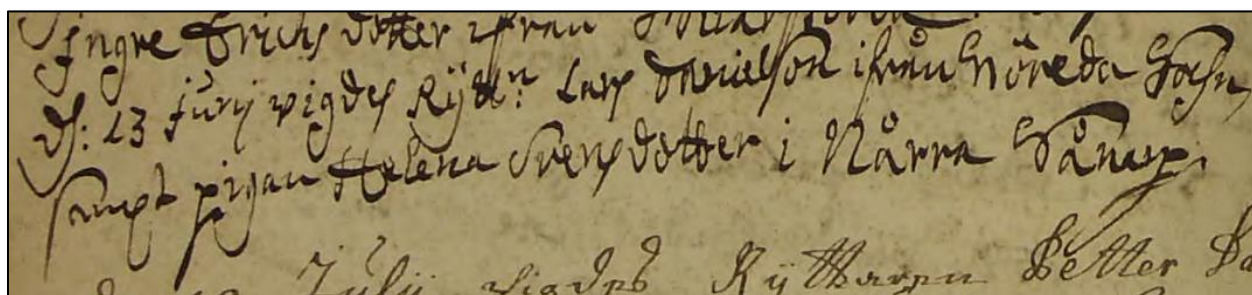 Ingre Erichs dotter ifrån
d: 13 Junij vigdes Rÿttn: Lars Danielson ifrån Nöreda Sochn,
sampt pigan Helena Svensdotter i Nårra
Julij vigdes Rÿttaren Petter